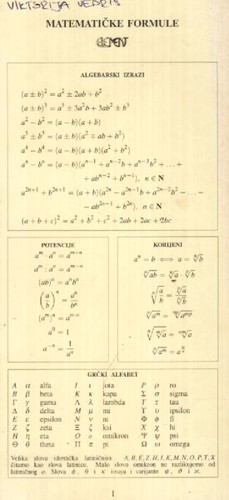 VIKTORIJA VEDRIŠ
MATEMATIČKE FORMULE
ELEMENT
ALGEBARSKI IZRAZI
(a ± b)² = a² ± 2ab + b²
(a ± b)³ = a³ ± 3a²b + 3ab² ± b³
a² − b² = (a − b)(a + b)
a³ ± b³ = (a ± b)(a² ∓ ab + b²)
a⁴ − b⁴ = (a − b)(a + b)(a² + b²)
aⁿ − bⁿ = (a − b)(aⁿ⁻¹ + aⁿ⁻²b + aⁿ⁻³b² + … +
+ abⁿ⁻² + bⁿ⁻¹), n ∈ N
a²ⁿ⁺¹ + b²ⁿ⁺¹ = (a + b)(a²ⁿ − a²ⁿ⁻¹b + a²ⁿ⁻²b² − … −
− ab²ⁿ⁻¹ + b²ⁿ), n ∈ N
(a + b + c)² = a² + b² + c² + 2ab + 2ac + 2bc
POTENCIJE
aᵐ · aⁿ = aᵐ⁺ⁿ
aᵐ : aⁿ = aᵐ⁻ⁿ
(ab)ⁿ = aⁿbⁿ
(a/b)ⁿ = aⁿ/bⁿ
(aᵐ)ⁿ = aᵐⁿ
a⁰ = 1
a⁻ⁿ = 1/aⁿ
KORIJENI
aⁿ = b ⟺ a = ⁿ√b
ⁿ√ab = ⁿ√a · ⁿ√b
ⁿ√(a/b) = ⁿ√a / ⁿ√b
GRČKI ALFABET
Α α alfa Ι ι jota Ρ ρ ro
Β β beta Κ κ kapa Σ σ sigma
Γ γ gama Λ λ lambda Τ τ tau
Δ δ delta Μ μ mi Υ υ ipsilon
Ε ε epsilon Ν ν ni Φ φ fi
Ζ ζ zeta Ξ ξ ksi Χ χ hi
Η η eta Ο ο omikron Ψ ψ psi
Θ θ theta Π π pi Ω ω omega
Velika slova identička latiničnim A, B, E, Z, H, I, K, M, N, O, P, T, X
čitamo kao slova latinice. Malo slovo omikron ne razlikujemo od
latiničnog o. Slova
imaju i varijante
1